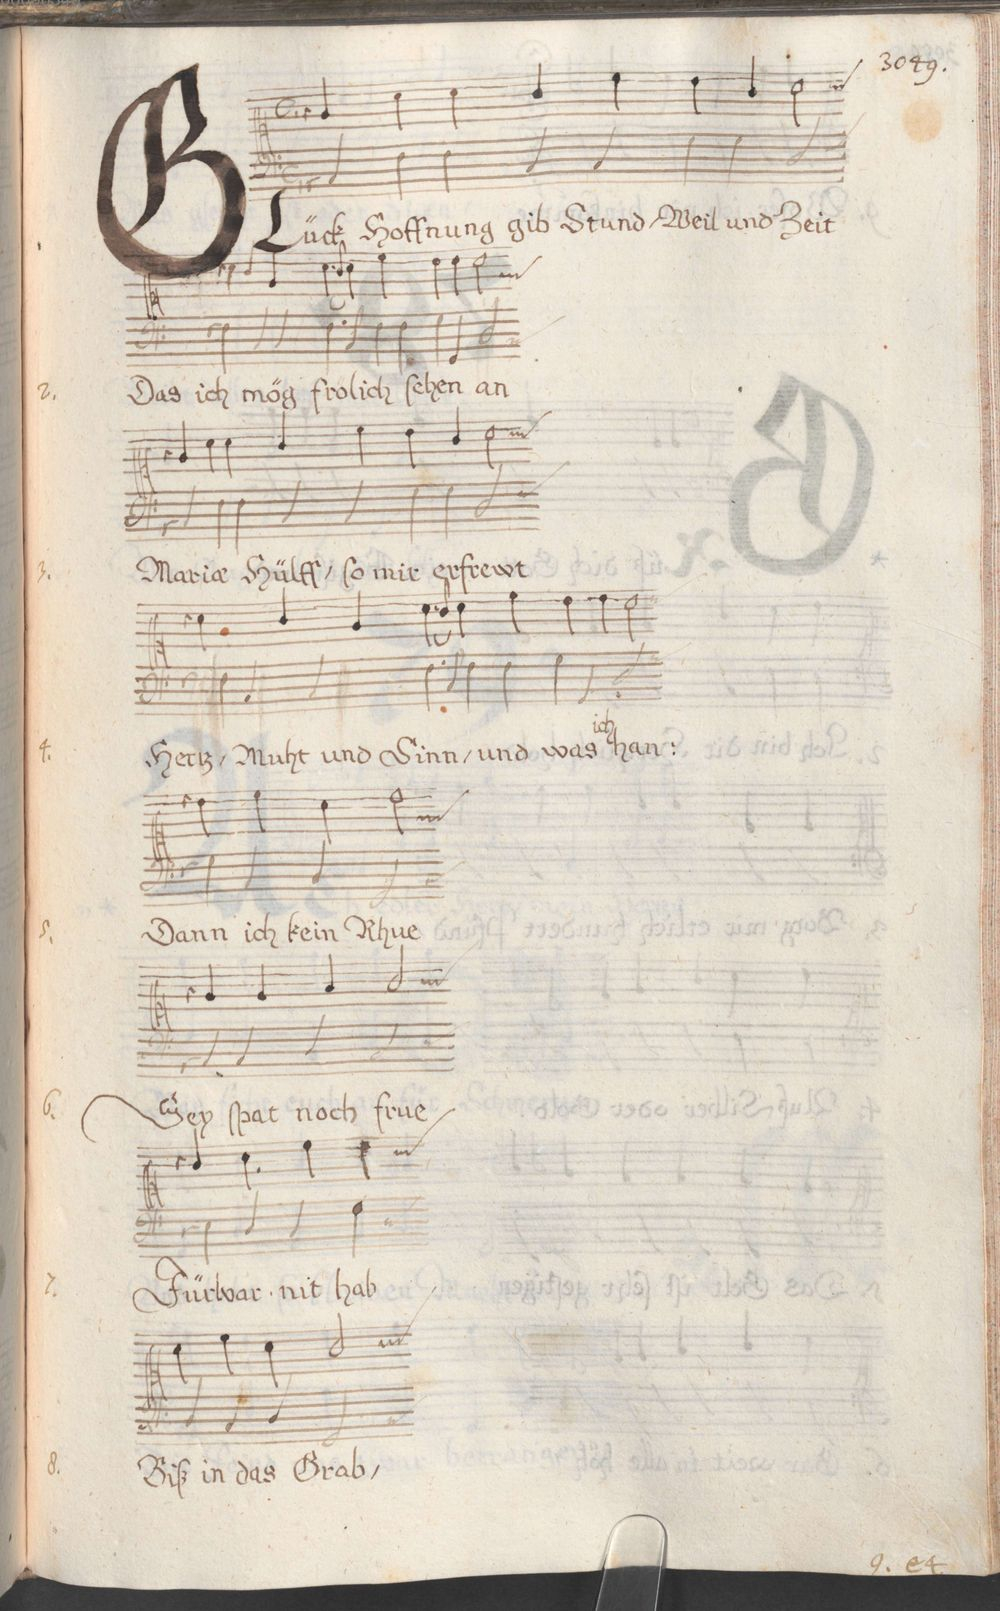 3049.
GLück Hoffnung gib Stund/Weil und Zeit
2. Das ich mög frolich sehen an
3. Mariæ Hülff/so mir erfrewt
4. Hertz/Muht und Sinn/und was ich han:
5. Dann ich kein Rhue
6. Wey spat noch frue
7. Fürwar nit hab
8. Biß in das Grab/
9. et